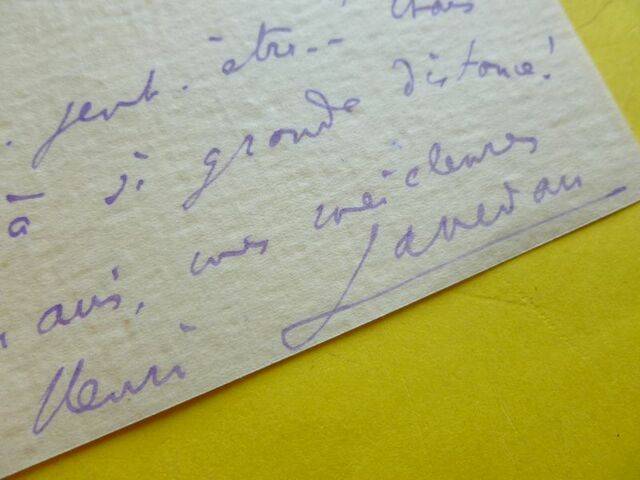 . peut-être-- ! Mais
à si grande distance!
, avis, mes meilleures
Henri Lavedan